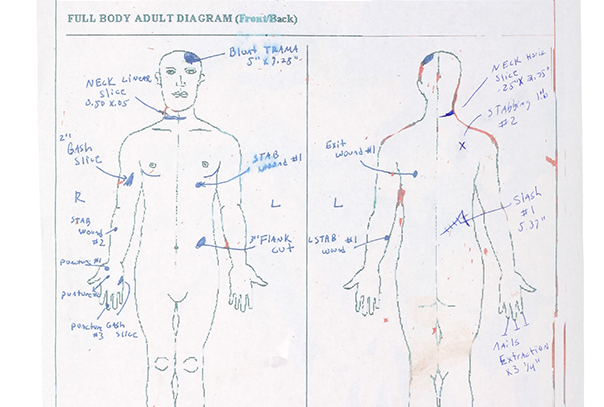 FULL BODY ADULT DIAGRAM (Front/Back)
Blunt TRAMA
5" X 7.25"
NECK LINEAR
SLICE
0.50 X.05
2"
GASH
SLICE
STAB
WOUND #1
R
L
STAB
WOUND
#2
3" FLANK
CUT
puncture #1
puncture
puncture GASH
#3 slice
NECK
slice
.25" X 2.75"
STABBING
#2
X
Exit
wound #1
L
STAB #1
wound
Slash
#1
5.37"
nails
Extraction
X3 1/4"